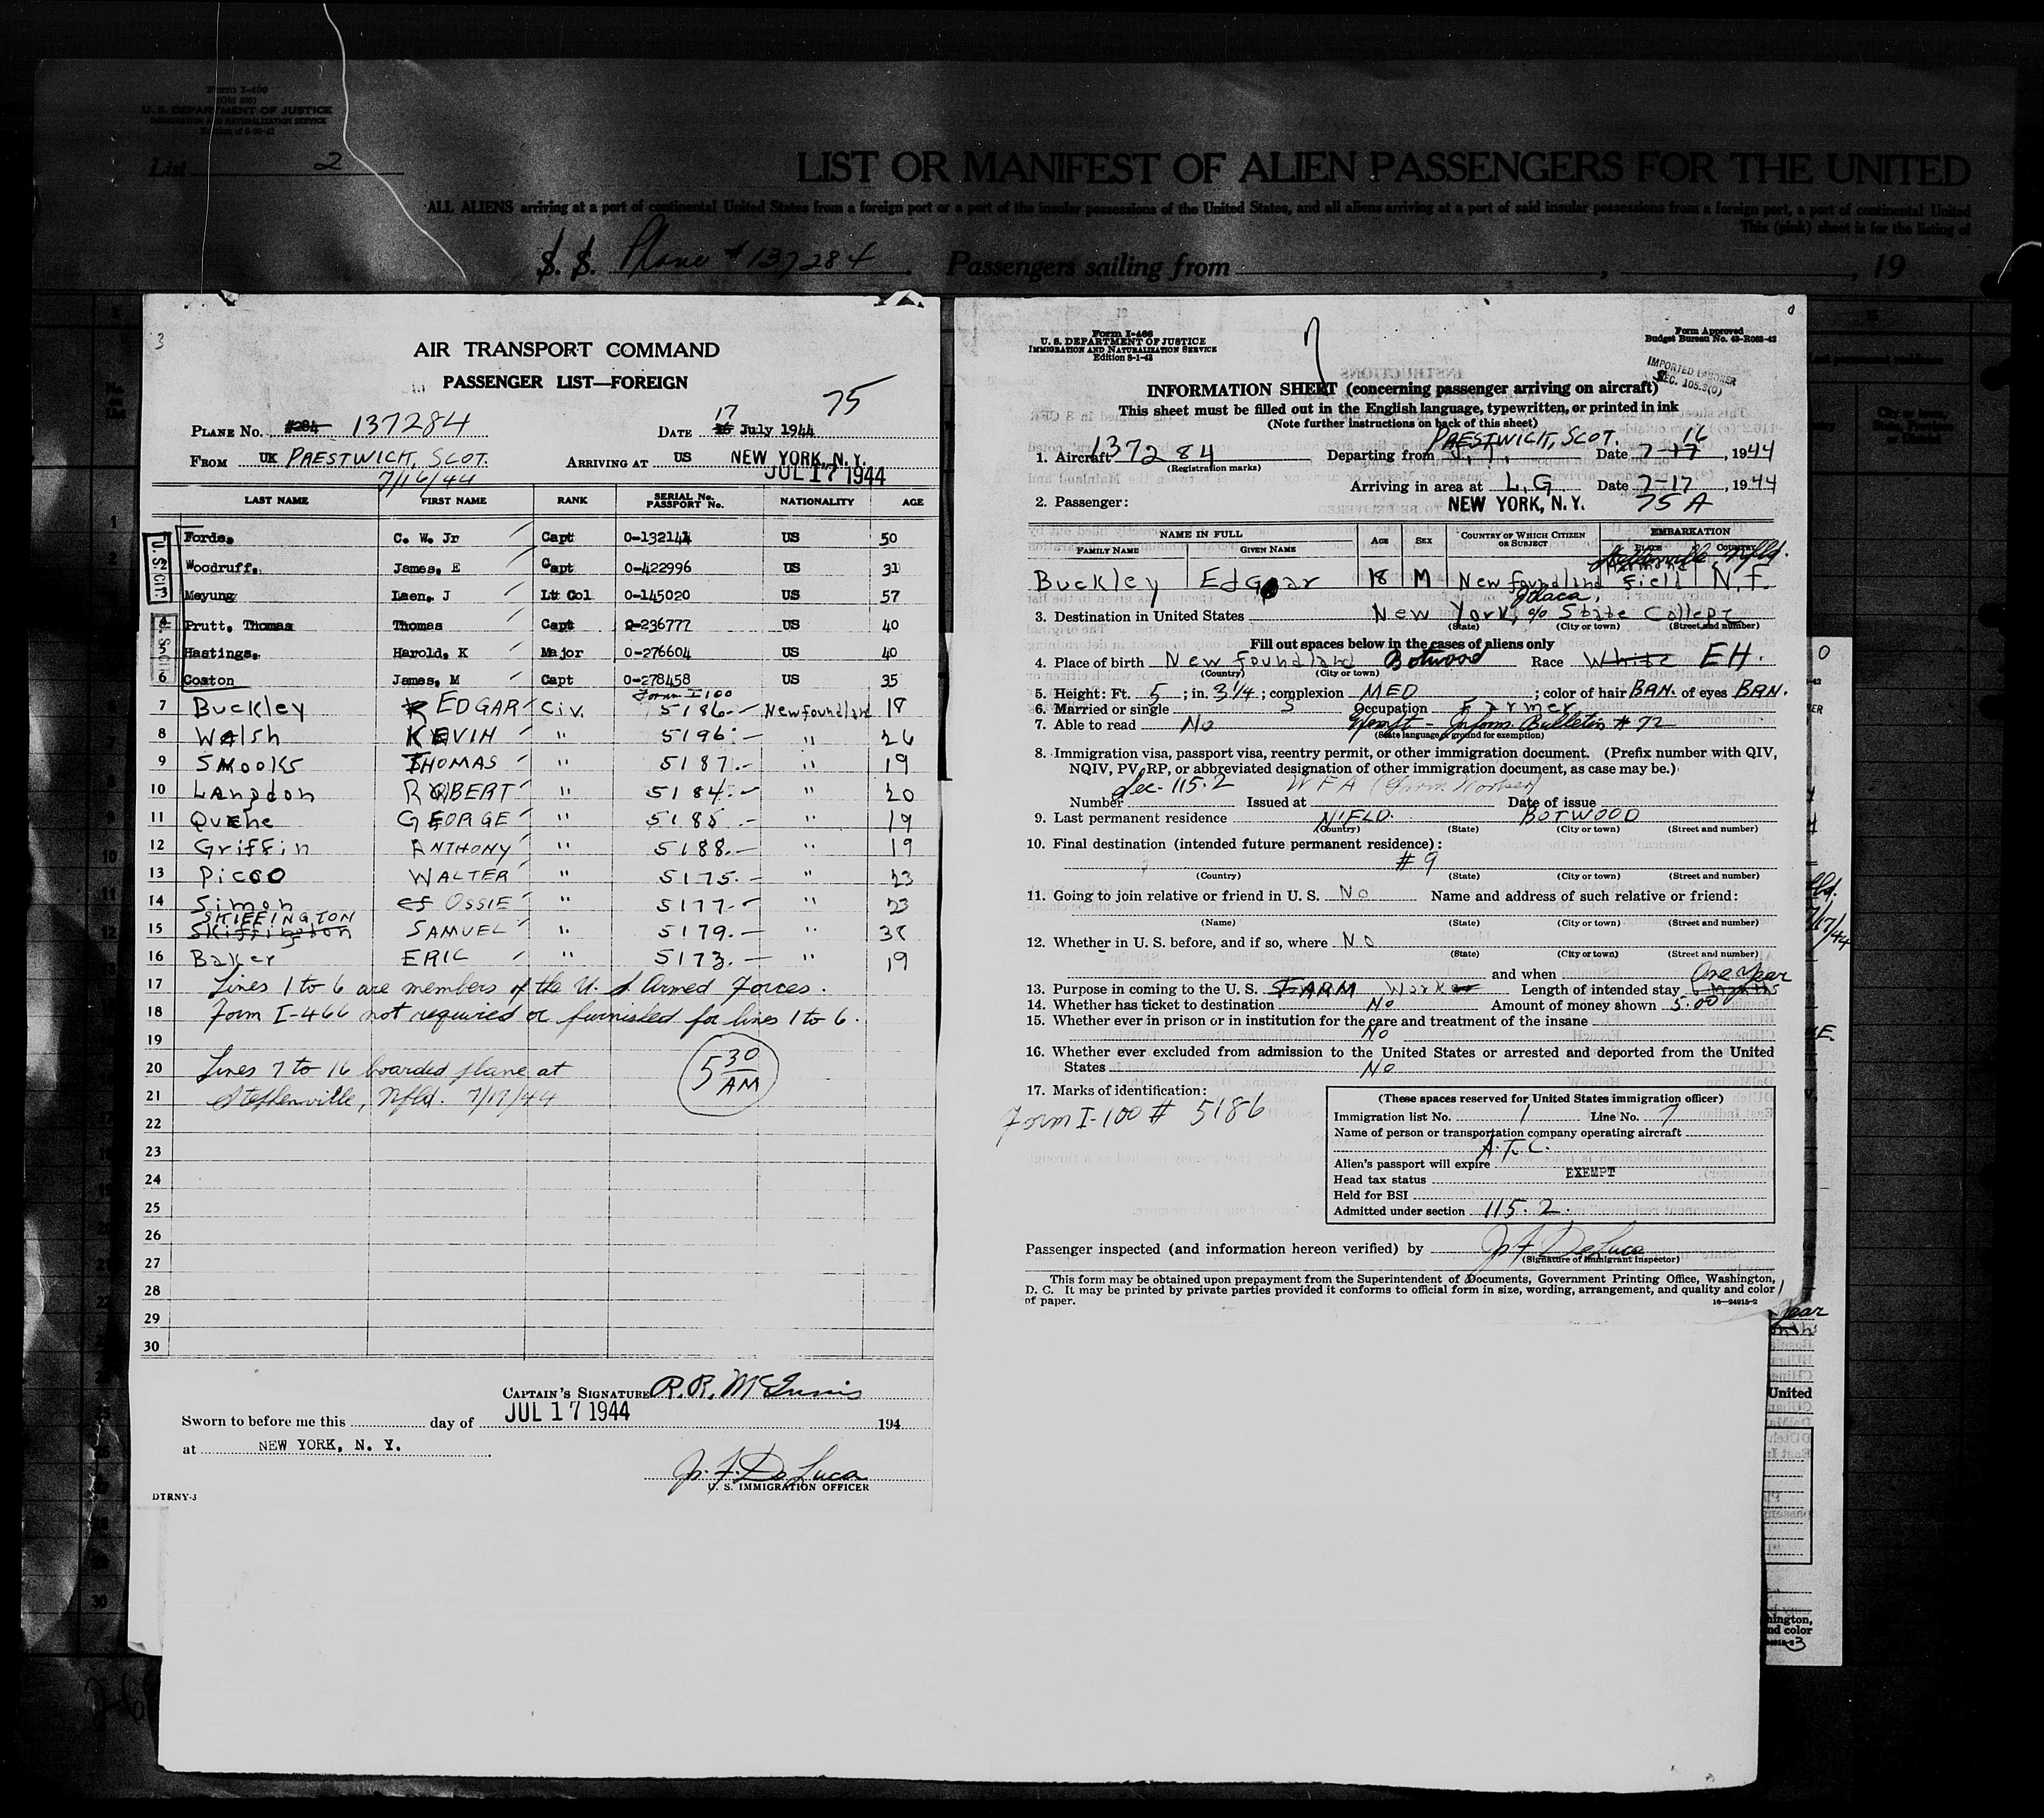 Form I-400
(Old 500)
U. S. DEPARTMENT OF JUSTICE
IMMIGRATION AND NATURALIZATION SERVICE
List 2
LIST OR MANIFEST OF ALIEN PASSENGERS FOR THE UNITED
ALL ALIENS arriving at a port of continental United States from a foreign port or a port of the insular possessions of the United States, and all aliens arriving at a port of said insular possessions from a foreign port, a port of continental United
This (pink) sheet is for the listing of
S. S. Plane # 137284 Passengers sailing from , , 19
3
AIR TRANSPORT COMMAND
PASSENGER LIST—FOREIGN
75
PLANE No. #284 137284 DATE 16 17 July 1944
FROM UK PRESTWICK, SCOT. ARRIVING AT US NEW YORK, N.Y.
7/16/44 JUL 17 1944
LAST NAME FIRST NAME RANK SERIAL No. PASSPORT No. NATIONALITY AGE
U.S. CIT.
1 Forde, C. W. Jr Capt 0-132144 US 50
2 Woodruff, James, E Capt 0-422996 US 31
Meyung Laen, J Lt Col 0-145020 US 57
Prutt, Thomas Thomas Capt 0-236777 US 40
5 Hastings, Harold, K Major 0-276604 US 40
6 Coston James, M Capt 0-278458 US 35
Form I-100
7 Buckley EDGAR Civ. 5186 Newfoundland 18
8 Walsh KEVIN " 5196 " 26
9 Smooks THOMAS " 5187 " 19
10 Langdon ROBERT " 5184 " 20
11 Quehe GEORGE " 5185 " 19
12 Griffin ANTHONY " 5188 " 19
13 Picco WALTER " 5175 " 23
14 Simon OSSIE " 5177 " 23
SKIFFINGTON
15 Skiffington SAMUEL " 5179 " 38
16 Baker ERIC " 5173 " 19
17 Lines 1 to 6 are members of the U. S Armed Forces.
18 Form I-466 not required or furnished for lines 1 to 6.
19
20 Lines 7 to 16 boarded plane at
21 Stephenville, Nfld. 7/17/44
5 30 AM
22
23
24
25
26
27
28
29
30
CAPTAIN'S SIGNATURE R. R. McGinnis
Sworn to before me this day of JUL 17 1944 194
at NEW YORK, N. Y.
J. F. De Luca
U. S. IMMIGRATION OFFICER
DTRNY-3
Form I-466
U. S. DEPARTMENT OF JUSTICE
IMMIGRATION AND NATURALIZATION SERVICE
Edition 8-1-43
7
Form Approved
Budget Bureau No. 43-R063-43
IMPORTED LABORER
SEC. 105.3(0)
INFORMATION SHEET (concerning passenger arriving on aircraft)
This sheet must be filled out in the English language, typewritten, or printed in ink
(Note further instructions on back of this sheet)
1. Aircraft 137284 Departing from PRESTWICK, SCOT. Date 7-17 16, 1944
(Registration marks)
Arriving in area at L, G Date 7-17, 1944
2. Passenger: NEW YORK, N.Y. 75 A
NAME IN FULL AGE SEX COUNTRY OF WHICH CITIZEN OR SUBJECT EMBARKATION
FAMILY NAME GIVEN NAME PLACE COUNTRY
Stephenville Nfld.
Buckley Edgar 18 M Newfoundland Field N.F.
3. Destination in United States New York, Ithaca, % State College
(State) (City or town) (Street and number)
Fill out spaces below in the cases of aliens only
4. Place of birth Newfoundland Botwood Race White EH.
(Country) (City or town)
5. Height: Ft. 5; in. 3 1/4; complexion MED; color of hair BRN. of eyes BRN.
6. Married or single S Occupation Farmer
7. Able to read No Exempt - Inform. Bulletin # 72
(State language, or ground for exemption)
8. Immigration visa, passport visa, reentry permit, or other immigration document. (Prefix number with QIV,
NQIV, PV, RP, or abbreviated designation of other immigration document, as case may be.)
Sec. 115.2 WFA (Farm Worker)
Number Issued at Date of issue
9. Last permanent residence N'FLD. BOTWOOD
(Country) (State) (City or town) (Street and number)
10. Final destination (intended future permanent residence):
# 9
(Country) (State) (City or town) (Street and number)
11. Going to join relative or friend in U. S. No Name and address of such relative or friend:
(Name) (State) (City or town) (Street and number)
12. Whether in U. S. before, and if so, where No
(State) (City or town) (Street and number)
and when
13. Purpose in coming to the U. S. FARM Work Length of intended stay 6 months One Year
14. Whether has ticket to destination No Amount of money shown 5.00
15. Whether ever in prison or in institution for the care and treatment of the insane
No
16. Whether ever excluded from admission to the United States or arrested and deported from the United
States No
17. Marks of identification:
Form I-100 # 5186
(These spaces reserved for United States immigration officer)
Immigration list No. 1 Line No. 7
Name of person or transportation company operating aircraft
A.T.C.
Alien's passport will expire
Head tax status EXEMPT
Held for BSI
Admitted under section 115.2.
Passenger inspected (and information hereon verified) by J. F. DeLuca
(Signature of immigrant inspector)
This form may be obtained upon prepayment from the Superintendent of Documents, Government Printing Office, Washington,
D. C. It may be printed by private parties provided it conforms to official form in size, wording, arrangement, and quality and color
of paper.
16—24915-2
year
United
hington,
nd color